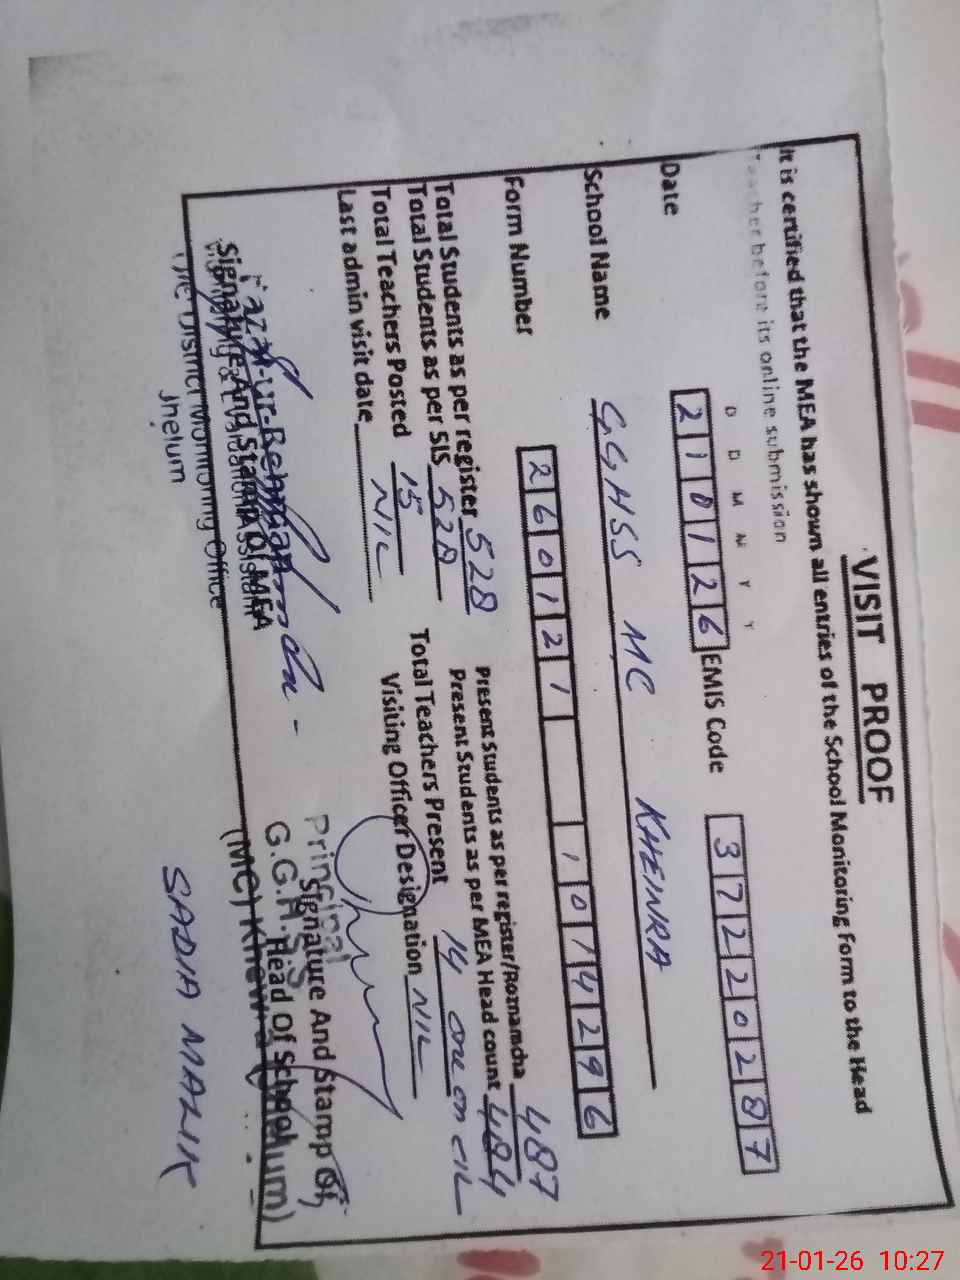 VISIT PROOF
It is certified that the MEA has shown all entries of the School Monitoring Form to the Head
Teacher before its online submission
D D M M Y Y
Date 210126 EMIS Code 37220287
School Name GGHSS MC KHEWRA
Form Number 260121 1014296
Total Students as per register 528 Present Students as per register/Roznamcha 487
Total Students as per SIS 528 Present Students as per MEA Head count 484
Total Teachers Posted 15 Total Teachers Present 14 one on CL
Last admin visit date NIL Visiting Officer Designation NIL
Signature And Stamp Of MEA
Signature And Stamp Of
Head Of School
-ur-Rehman
Monitoring & Evaluation Assistant
The District Monitoring Office
Jhelum
Principal
G.G.H.S.S
(MC) Khewra (Jhelum)
SADIA MALIK
21-01-26 10:27